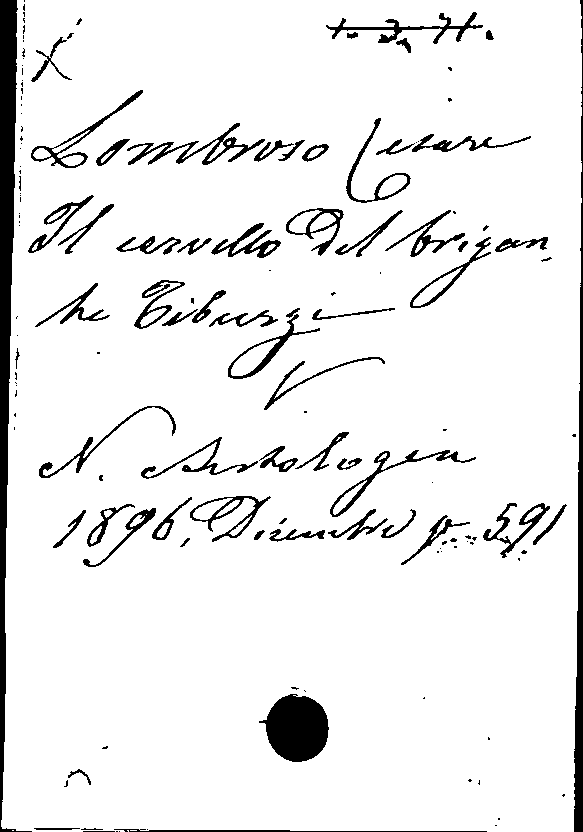 1. 3. 71.
Lombroso Cesare
Il cervello del brigan-
te Tiburzi
V
N. Antologia
1896, Dicembre p. 591